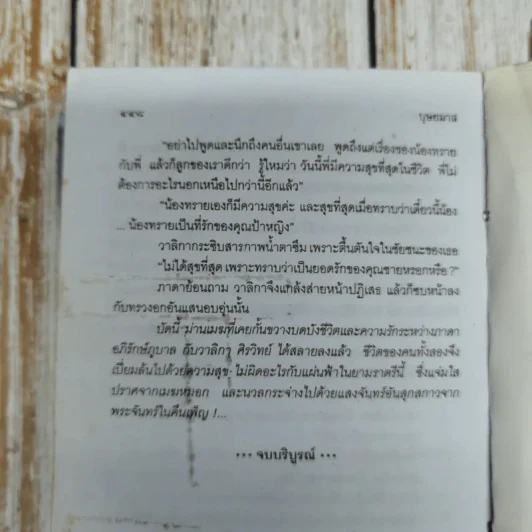 ๔๔๘ บุษยมาส
"อย่าไปพูดและนึกถึงคนอื่นเขาเลย พูดถึงแต่เรื่องของน้องทราย
กับพี่ แล้วก็ลูกของเราดีกว่า รู้ไหมว่า วันนี้พี่มีความสุขที่สุดในชีวิต พี่ไม่
ต้องการอะไรนอกเหนือไปกว่านี้อีกแล้ว"
"น้องทรายเองก็มีความสุขค่ะ และสุขที่สุดเมื่อทราบว่าเดี๋ยวนี้น้อง
... น้องทรายเป็นที่รักของคุณป้าหญิง"
วาลิกากระซิบสารภาพน้ำตาซึม เพราะตื้นตันใจในชัยชนะของเธอ
"ไม่ได้สุขที่สุด เพราะทราบว่าเป็นยอดรักของคุณชายหรอกหรือ ?"
ภาดาย้อนถาม วาลิกาจึงแกล้งส่ายหน้าปฏิเสธ แล้วก็ซบหน้าลง
กับทรวงอกอันแสนอบอุ่นนั้น
บัดนี้ ม่านเมฆที่เคยกั้นขวางบดบังชีวิตและความรักระหว่างภาดา
อภิรักษ์ภูบาล กับวาลิกา ศิรวิทย์ ได้สลายลงแล้ว ชีวิตของคนทั้งสองจึง
เปี่ยมล้นไปด้วยความสุข ไม่ผิดอะไรกับแผ่นฟ้าในยามราตรีนี้ ซึ่งแจ่มใส
ปราศจากเมฆหมอก และนวลกระจ่างไปด้วยแสงจันทร์อันสุกสกาวจาก
พระจันทร์ในคืนเพ็ญ !...
••• จบบริบูรณ์ •••